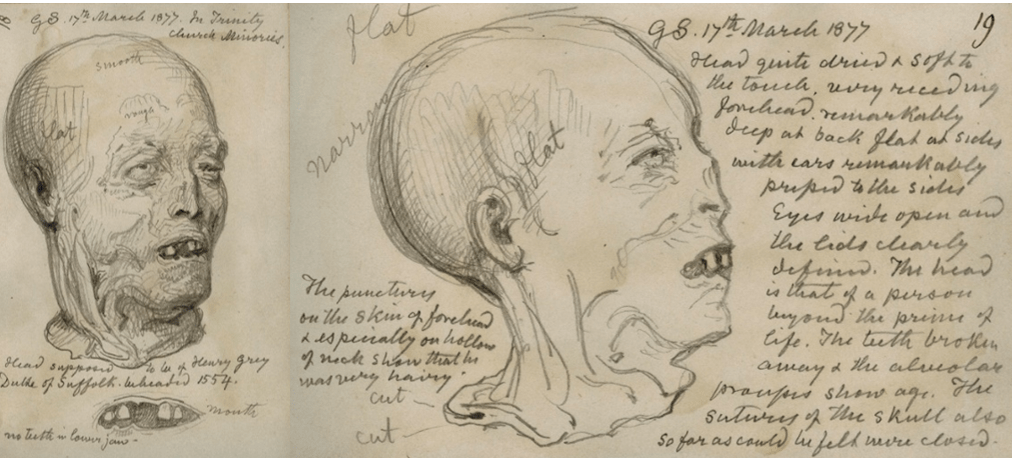 18
GS. 17th March 1877. In Trinity
church Minories.
smooth
rough
flat
Head supposed to be of Henry Grey
Duke of Suffolk. beheaded 1554.
mouth
no teeth in lower jaw.
flat
narrow
flat
GS. 17th March 1877
19
Head quite dried & soft to
the touch, very receding
forehead, remarkably
deep at back flat at sides
with ears remarkably
to the sides
Eyes wide open and
the lids clearly
defined. The head
is that of a person
beyond the prime of
life. The teeth broken
away & the alveolar
show age. The
sutures of the skull also
so far as could be felt were closed.
The punctures
on the skin of forehead
& especially on hollow
of neck show that he
was very hairy.
cut
cut